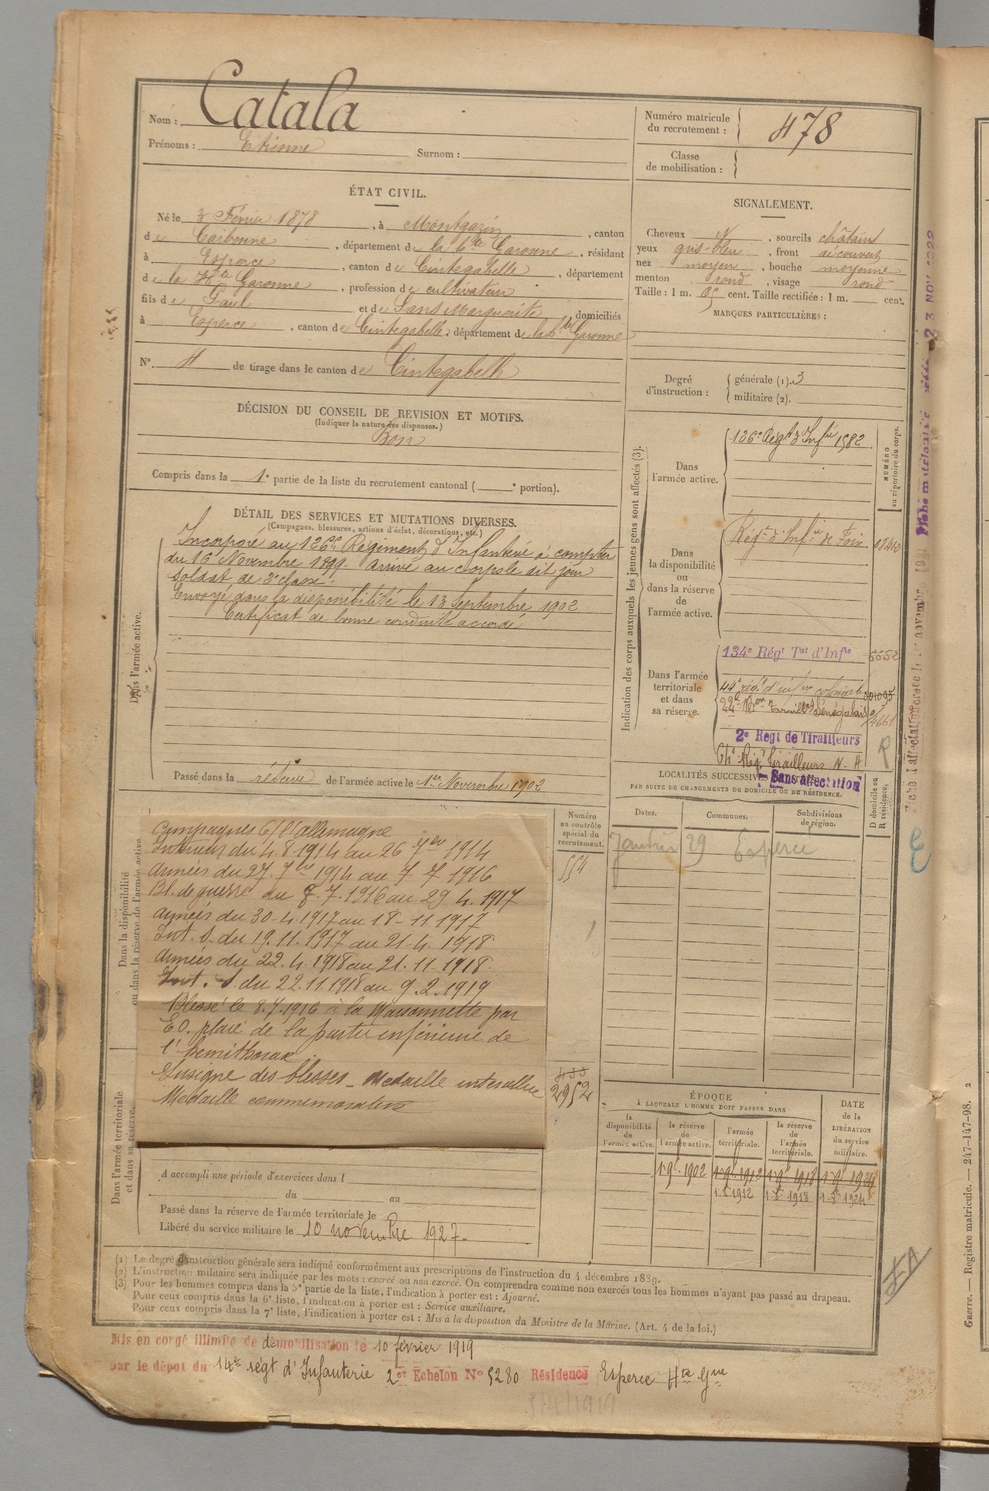 Nom : Catala
Prénoms : Etienne Surnom :
Numéro matricule du recrutement : 478
Classe de mobilisation :
ÉTAT CIVIL.
Né le 3 Février 1878, à Montgazin, canton
de Carbonne, département de la Hte Garonne, résidant
à Esperce, canton de Cintegabelle, département
de la Hte Garonne, profession de cultivateur
fils de Paul et de Sans Marguerite domiciliés
à Esperce, canton de Cintegabelle, département de la Hte Garonne
N° 4 de tirage dans le canton de Cintegabelle
SIGNALEMENT.
Cheveux N, sourcils châtain
yeux gris-bleu, front découvert
nez moyen, bouche moyenne
menton rond, visage rond
Taille : 1 m. cent. Taille rectifiée : 1 m. cent.
MARQUES PARTICULIÈRES :
Degré d'instruction : générale (1). 3
militaire (2).
DÉCISION DU CONSEIL DE REVISION ET MOTIFS.
(Indiquer la nature des dispenses.)
Bon
Compris dans la 1e partie de la liste du recrutement cantonal ( e portion).
DÉTAIL DES SERVICES ET MUTATIONS DIVERSES.
(Campagnes, blessures, actions d'éclat, décorations, etc.)
Dans l'armée active.
Incorporé au 126e Régiment d'Infanterie à compter
du 16 Novembre 1899. Arrivé au corps le dit jour
soldat de 2e classe.
Envoyé dans la disponibilité le 13 Septembre 1902
Certificat de bonne conduite accordé
Passé dans la réserve de l'armée active le 1er Novembre 1902
Indication des corps auxquels les jeunes gens sont affectés (3).
NUMÉRO au répertoire du corps.
Dans l'armée active.
126e Régt d'Infie 1582
Dans la disponibilité ou dans la réserve de l'armée active.
Régt d'Infie de Foix
Dans l'armée territoriale et dans sa réserve.
134e Régt Tal d'Infie
2e Regt de Tirailleurs
Sans affectation
LOCALITÉS SUCCESSIVES
PAR SUITE DE CHANGEMENTS DE DOMICILE OU DE RÉSIDENCE.
Dates. Communes. Subdivisions de région. D domicile ou R résidence.
Janvier 29 Esperce
Dans la disponibilité ou dans la réserve de l'armée active
Numéro au contrôle spécial du recrutement.
554
Campagnes C/ l'allemagne
Intérieur du 4.8.1914 au 26 7bre 1914
Armées du 27.7bre 1914 au 7.7.1916
Bl. de guerre du 8.7.1916 au 29.4.1917
Armées du 30-4.1917 au 18-11.1917
Int. S. du 19.11.1917 au 21-4.1918
Armées du 22.4.1918 au 21.11.1918
Int. S du 22.11.1918 au 9.2.1919
Blessé le 8.7.1916 à la Maisonnette par
E O. plaie de la partie inférieure de
l'hemithorax
Insigne des blessés - Medaille interalliée
Medaille commemorative
2952
Dans l'armée territoriale et dans sa réserve.
A accompli une période d'exercices dans l
du au
Passé dans la réserve de l'armée territoriale le
Libéré du service militaire le 10 novembre 1927-
ÉPOQUE
À LAQUELLE L'HOMME DOIT PASSER DANS
la disponibilité de l'armée active. la réserve de l'armée active. l'armée territoriale. la réserve de l'armée territoriale. DATE de la LIBÉRATION du service militaire.
(1) Le degré d'instruction générale sera indiqué conformément aux prescriptions de l'instruction du 4 décembre 1889.
(2) L'instruction militaire sera indiquée par les mots : exercé ou non exercé. On comprendra comme non exercés tous les hommes n'ayant pas passé au drapeau.
(3) Pour les hommes compris dans la 5e partie de la liste, l'indication à porter est : Ajourné.
Pour ceux compris dans la 6e liste, l'indication à porter est : Service auxiliaire.
Pour ceux compris dans la 7e liste, l'indication à porter est : Mis à la disposition du Ministre de la Marine. (Art. 4 de la loi.)
Mis en congé illimité de démobilisation le 10 février 1919
par le dépôt du 14e régt d'Infanterie 2e Echelon N° 5280 Résidence Esperce Hte Gne
Guerre. — Registre matricule. — 247-147-98. 2